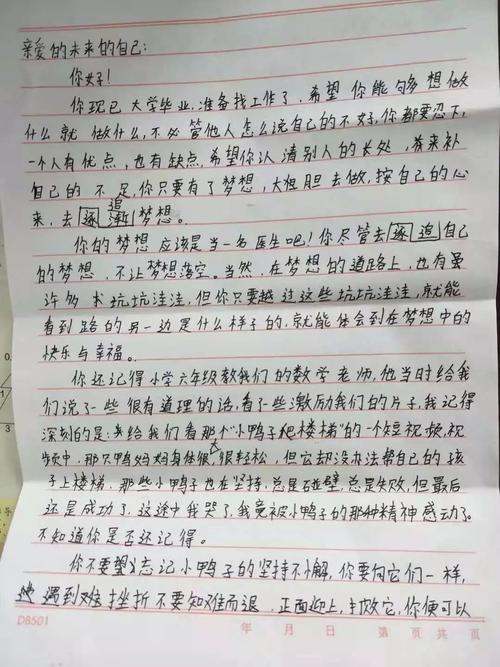 亲爱的未来的自己:
你好!
你现已大学毕业,准备找工作了,希望你能够想做
什么就做什么,不必管他人怎么说自己的不好,你都要忍下,
一个人有优点,也有缺点,希望你认清别人的长处,将来补
自己的不足,你只要有了梦想,大胆去做,按自己的心
来,去逐追梦想。
你的梦想应该是当一名医生吧!你尽管去逐追自己
的梦想,不让梦想落空。当然,在梦想的道路上,也有虽
许多坑坑洼洼,但你只要越过这些坑坑洼洼,就能
看到路的另一边是什么样子的,就能体会到在梦想中的
快乐与幸福。
你还记得小学六年级教我们的数学老师,他当时给我
们说了一些很有道理的话,看了一些激励我们的片子,我记得
深刻的是:给我们看那个“小鸭子爬楼梯”的一个短视频,视
频中,那只鸭妈妈身体很轻松,但它却没办法帮自己的孩
子上楼梯,那些小鸭子也在坚持,总是碰壁,总是失败,但最后
还是成功了,这途中我哭了,我竟被小鸭子的那种精神感动了。
不知道你是否还记得。
你不要忘记小鸭子的坚持不懈,你要向它们一样,
遇到难挫折不要知难而退,正面迎上,打败它,你便可以
D8501
年 月 日 第 页 共 页